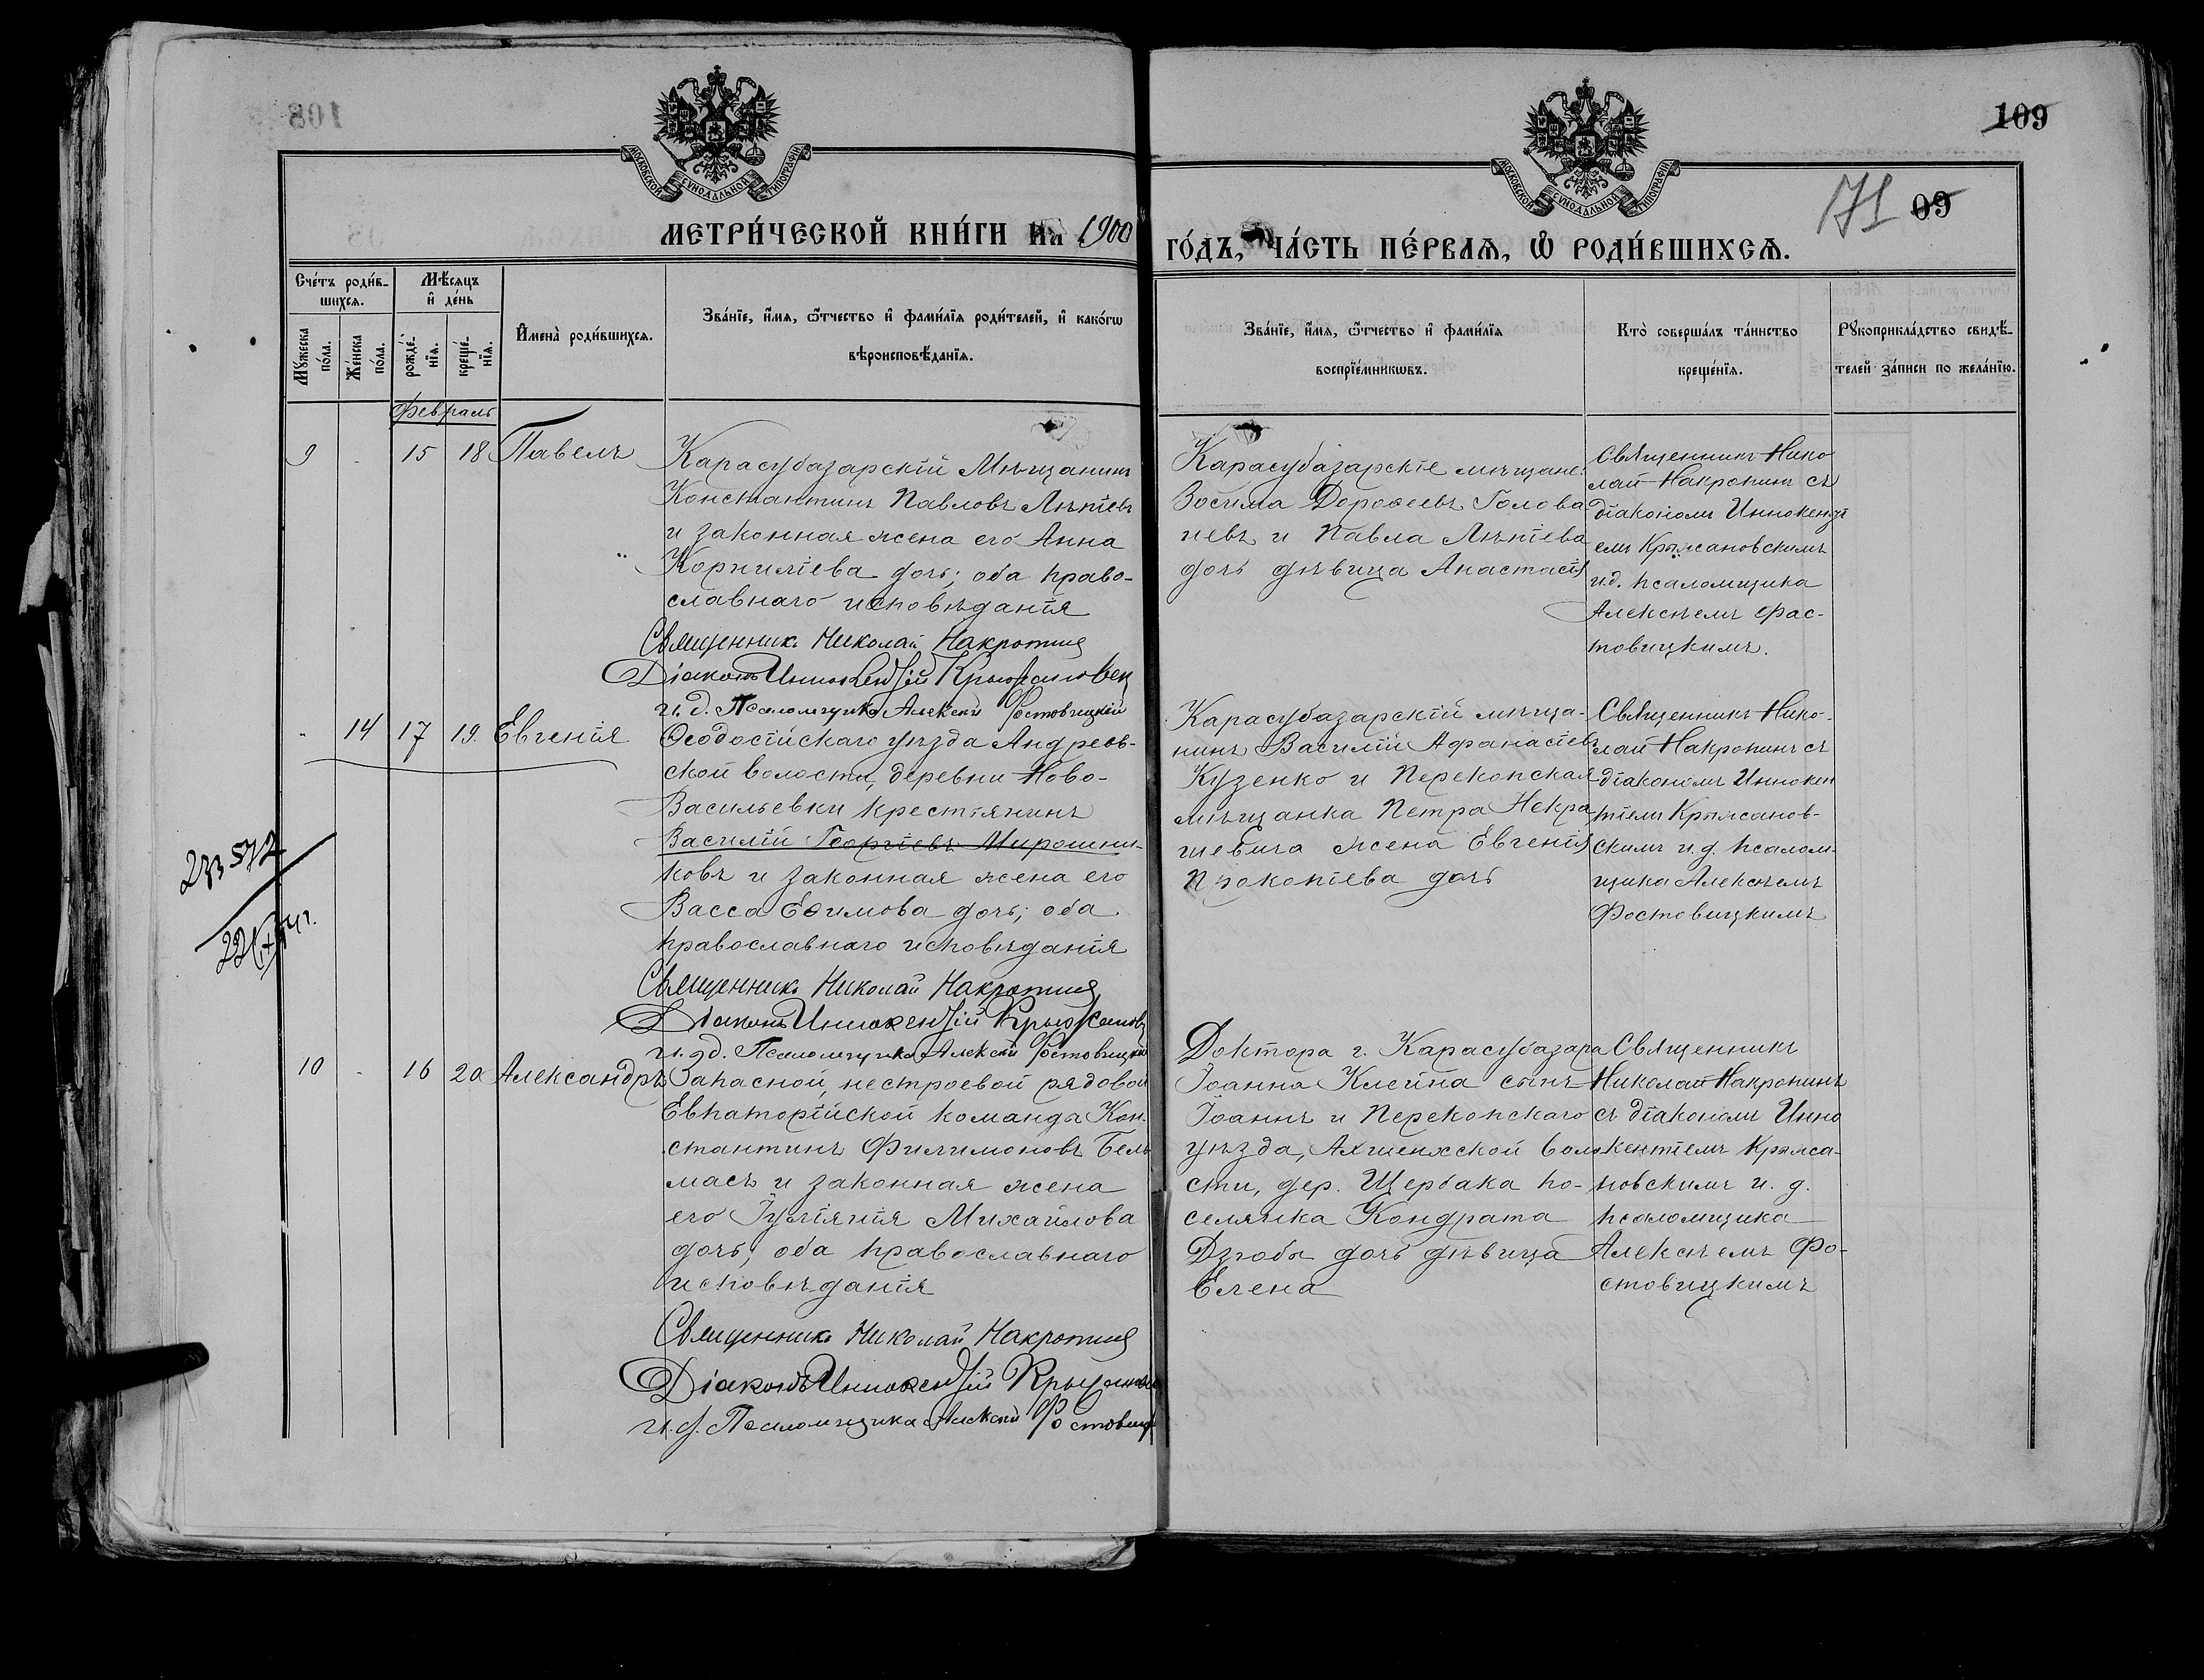 109
171 09
МОСКОВСКОЙ СѴНОДАЛЬНОЙ ТИПОГРАФІИ
МОСКОВСКОЙ СѴНОДАЛЬНОЙ ТИПОГРАФІИ
МЕТРИ́ЧЕСКОЙ КНИ́ГИ НА 1900
ГО́ДЪ, ЧА́СТЬ ПЕ́РВАѦ, Ѡ РОДИ́ВШИХСѦ.
Сче́тъ роди́в-
шихсѧ.
Мꙋ́жеска по́ла.
Же́нска по́ла.
Мѣ́сѧцъ
и де́нь
рожде́-
нїѧ.
креще́-
нїѧ.
Имена̀ роди́вшихсѧ.
Зва́нїе, и́мѧ, ѻ́тчество и фами́лїѧ роди́телей, и како́гѡ
вѣроисповѣ́данїѧ.
Зва́нїе, и́мѧ, ѻ́тчество и фами́лїѧ
воспрїе́мникѡвъ.
Кто̀ соверша́лъ та́инство
креще́нїѧ.
Рꙋкоприкла́дство свидѣ́-
телей за́писи по жела́нїю.
Февраль
9 - 15 18 Павелъ
Карасубазарскій Мѣщанинъ
Константинъ Павловъ Лѣпіевъ
и законная жена его Анна
Корниліева дочь; оба право-
славнаго исповѣданія
Священникъ Николай Накропинъ
Діаконъ Иннокентій Крыжановск
И. д. Псаломщика Алексѣй Фостовицкій
Карасубазарскіе мѣщане:
Зосима Дорофеевъ Голова
невъ и Павла Лѣпіева
дочь дѣвица Анастасія
Священникъ Нико
лай Накропинъ съ
діакономъ Иннокенті
емъ Крыжановскимъ
и.д. псаломщика
Алексѣемъ Фас-
товицкимъ.
- 14 17 19. Евгенія
Ѳеодосійскаго уѣзда Андреев-
ской волости, деревни Ново-
Васильевки крестьянинъ
Василій Георгіевъ Мирошни-
ковъ и законная жена его
Васса Ефимова дочь; оба
православнаго исповѣданія
Священникъ Николай Накропинъ
Діаконъ Иннокентій Крыжановск
И. д. Псаломщика Алексѣй Фостовицкій
Карасубазарскій мѣща-
нинъ Василій Афанасіевъ
Кузенко и Перекопская
мѣщанка Петра Некра
шевича жена Евгенія
Прокопіева дочь
Священникъ Нико-
лай Накропинъ съ
діакономъ Иннокен
тіемъ Крыжанов-
скимъ и. д. псалом-
щика Алексѣемъ
Фостовицкимъ
10 - 16 20 Александръ
Запасной, нестроевой рядовой
Евпаторійской команда Кон-
стантинъ Филимоновъ Бель
масъ и законная жена
его Іуліянія Михайлова
дочь; оба православнаго
исповѣданія
Священникъ Николай Накропинъ
Діаконъ Иннокентій Крыжановск
И. д. Псаломщика Алексѣй Фостовицк
Доктора г. Карасубазара
Іоанна Клейна сынъ
Іоаннъ и Перекопскаго
уѣзда, Ахшеихской воло
сти, дер. Щербака по-
селянка Кондрата
Дзюбы дочь дѣвица
Елена
Священникъ
Николай Накропинъ
съ діакономъ Инно
кентіемъ Крыжа-
новскимъ и. д.
псаломщика
Алексѣемъ Фо-
стовицкимъ